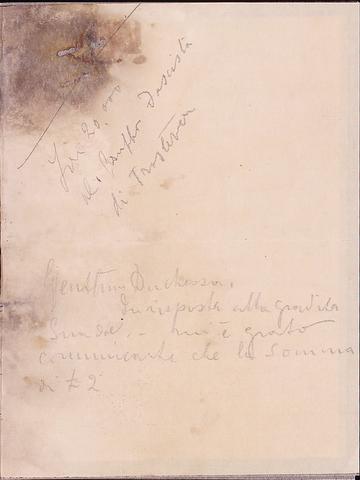 Lire 20.000
al Gruppo Fascista
di Trastevere
Gentma Duchessa,
In risposta alla gradita
Sua del .. mi è grato
comunicarle che la Somma
di £ 2